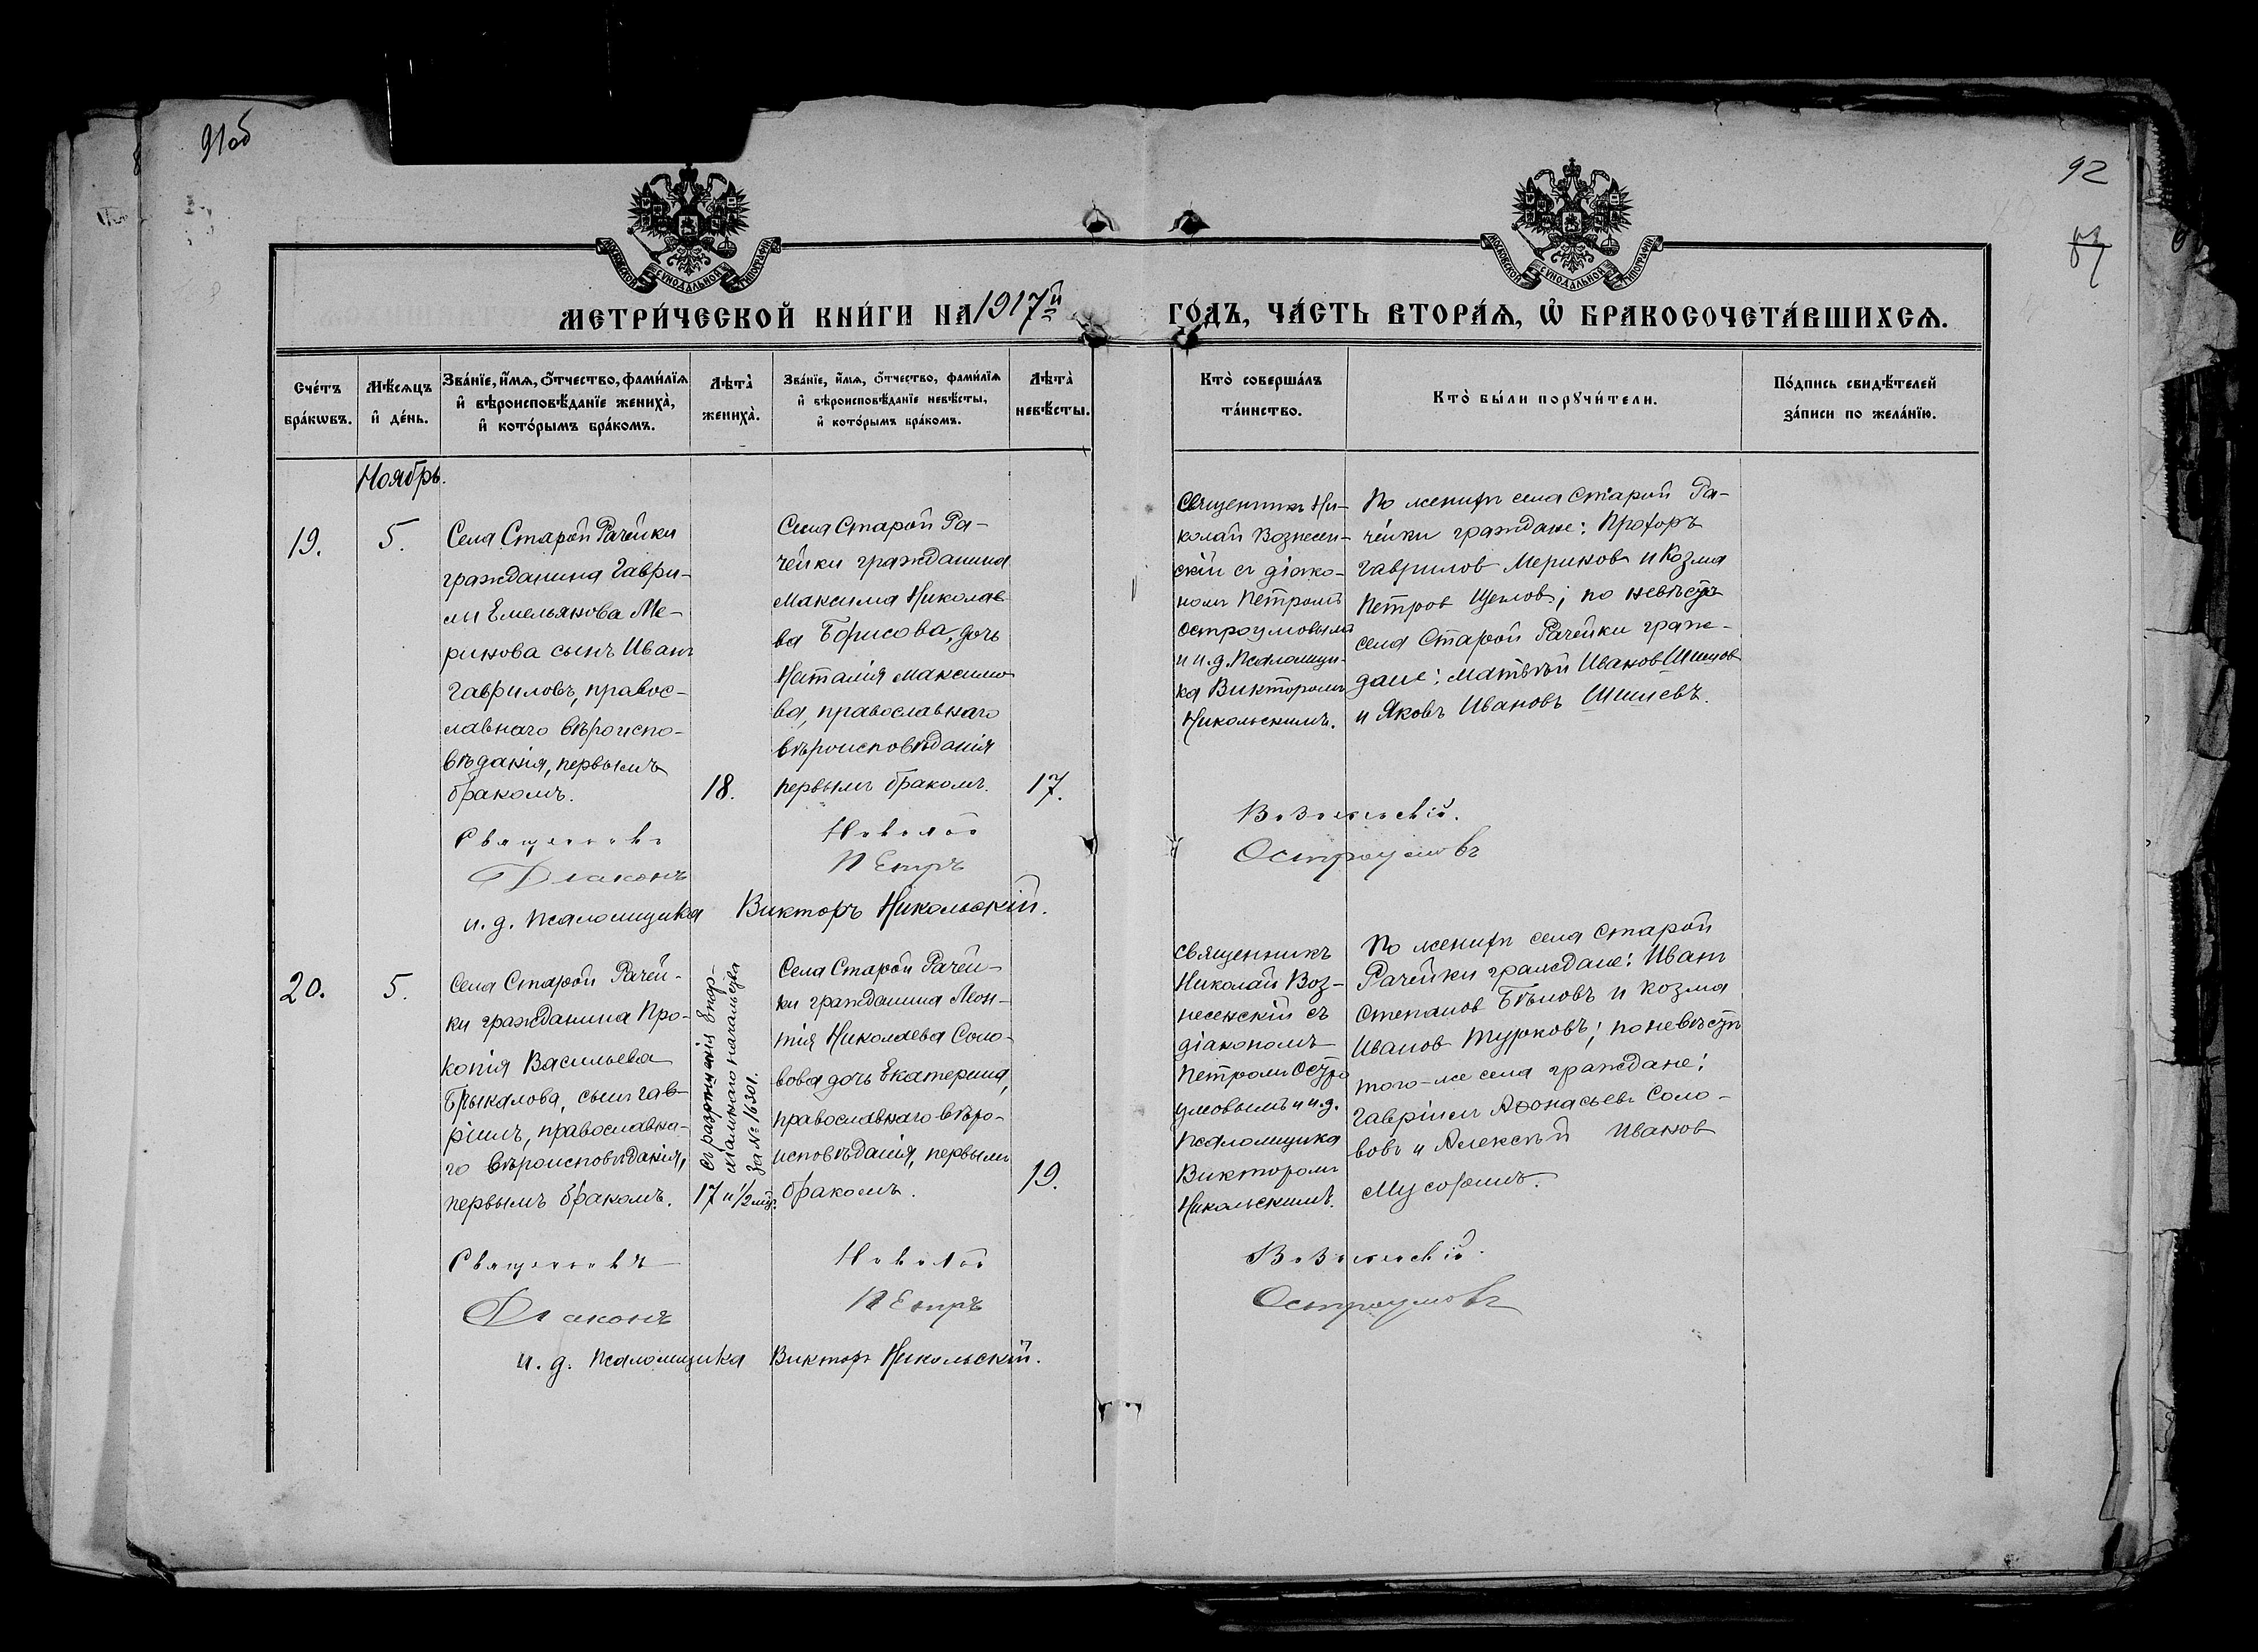 91об
92
МОСКОВСКОЙ СУНОДАЛЬНОЙ ТИПОГРАФІИ
МОСКОВСКОЙ СУНОДАЛЬНОЙ ТИПОГРАФІИ
МЕТРИ́ЧЕСКОЙ КНИ́ГИ НА 1917й ГО́ДЪ, ЧА́СТЬ ВТОРА́Ѧ, Ѽ БРАКОСОЧЕТА́ВШИХСѦ.
Сче́тъ
бра́кѡвъ.
Мѣ́сѧцъ
и҆ де́нь.
Зва́нїе, и҆́мѧ, ѻ҆́тчество, фами́лїѧ
и҆ вѣроисповѣ́данїе жениха̀,
и҆ кото́рымъ бра́комъ.
Лѣта̀
жениха̀.
Зва́нїе, и҆́мѧ, ѻ҆́тчество, фами́лїѧ
и҆ вѣроисповѣ́данїе невѣ́сты,
и҆ кото́рымъ бра́комъ.
Лѣта̀
невѣ́сты.
Кто̀ соверша́лъ
та́инство.
Кто̀ бы́ли порꙋчи́тели.
По́дпись свидѣ́телей
за́писи по жела́нїю.
Ноябрь.
19.
5.
Села Старой Рачейки
гражданина Гаври-
лы Емельянова Ме-
ринова сынъ Иванъ
Гавриловъ, правос-
лавнаго вѣроиспо-
вѣданія, первымъ
бракомъ.
18.
Села Старой Ра-
чейки гражданина
Максима Николае
ва Борисова, дочь
Наталія Максимо
ва, православнаго
вѣроисповѣданія
первымъ бракомъ.
17.
Священникъ Ни-
колай Вознесен-
скій съ діако-
номъ Петромъ
Остроумовымъ
и и.д. Псаломщи-
ка Викторомъ
Никольскимъ.
По женихѣ села Старой Ра-
чейки граждане: Прохоръ
Гаврилов Мериновъ и Козма
Петров Щегловъ; по невѣстѣ
села Старой Рачейки граж-
дане: Матвѣй Иванов
и Яковъ Ивановъ
Священникъ Николай Вознесенскій.
Діаконъ Петръ Остроумовъ
и. д. Псаломщика Викторъ Никольскій.
20.
5.
Села Старой Рачей-
ки гражданина Про-
копія Васильева
Брыкалова, сынъ Гав-
ріилъ, православна-
го вѣроисповѣданія,
первымъ бракомъ.
съ разрѣшенія Епар-
хіальнаго начальства
за № 16301.
17 и 1/2 мѣс.
Села Старой Рачей-
ки гражданина Леон-
тія Николаева Соло-
вова дочь Екатерина,
православнаго вѣро-
исповѣданія, первымъ
бракомъ.
19.
Священникъ
Николай Воз-
несенскій съ
діакономъ
Петромъ Остро
умовымъ и и.д.
Псаломщика
Викторомъ
Никольскимъ.
По женихѣ села Старой
Рачейки граждане: Иванъ
Степанов Бѣловъ и Козма
Иванов Турковъ; по невѣстѣ
того-же села граждане:
Гавріилъ Аѳонасьевъ Соло-
вовъ и Алексѣй Иванов
Мусоринъ.
Священникъ Николай Вознесенскій.
Діаконъ Петръ Остроумовъ
и. д. Псаломщика Викторъ Никольскій.